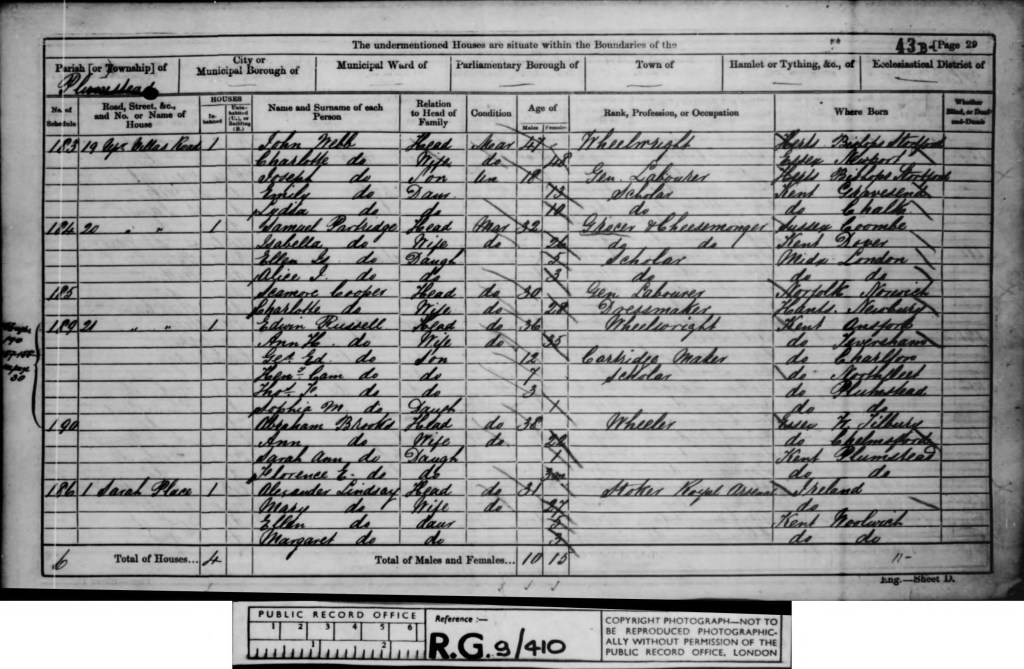 The undermentioned Houses are situate within the Boundaries of the
43 B [Page 29
Parish [or Township] of
Plumstead
City or Municipal Borough of
Municipal Ward of
Parliamentary Borough of
Town of
Hamlet or Tything, &c., of
Ecclesiastical District of
No. of Schedule
Road, Street, &c., and No. or Name of House
HOUSES
Inhabited
Uninhabited (U.), or Building (B.)
Name and Surname of each Person
Relation to Head of Family
Condition
Age of
Males
Females
Rank, Profession, or Occupation
Where Born
Whether Blind, or Deaf-and-Dumb
183 19 Villas Road 1 John Webb Head Mar 47 Wheelwright Herts Bishops Stortford
Charlotte do Wife do 48 Essex Newport
Joseph do Son Un 18 Gen. Labourer Herts Bishops Stortford
Emily do Daur 13 Scholar Kent Gravesend
Lydia do do 10 do do Chalk
184 20 " " 1 Samuel Partridge Head Mar 32 Grocer & Cheesemonger Sussex Coombe
Isabella do Wife do 26 do do Kent Dover
Ellen Is. do Daugh 5 Scholar Midx London
Alice J. do do 3 do do do
185 Seamore Cooper Head do 30 Gen Labourer Norfolk Norwich
Charlotte do Wife do 28 Dressmaker Hants. Newbury
189 21 " " 1 Edwin Russell Head do 36 Wheelwright Kent Ansford
Ann H. do Wife do 35 do Feversham
Geo. Ed. do Son 12 Cartridge Maker do Charlton
Heny. Cam do do 7 Scholar do Northfleet
Thos. F. do do 3 do Plumstead
Sophia M. do Daugh 1 do do
190 Abraham Brooks Head do 38 Wheeler Essex W. Tilbury
Ann do Wife do 22 do Chelmsford
Sarah Ann do Daugh 1 Kent Plumstead
Florence E. do do 3m do do
186 1 Sarah Place 1 Alexander Lindsay Head do 31 Stoker Royal Arsenal Ireland
Mary do Wife do 27 do
Ellen do daur 5 Kent Woolwich
Margaret do do 3 do do
6 Total of Houses... 4 Total of Males and Females... 10 15
Eng.—Sheet D.
PUBLIC RECORD OFFICE
1 2 3 4 5 6
1 2
Reference :—
R.G. 9/410
COPYRIGHT PHOTOGRAPH—NOT TO
BE REPRODUCED PHOTOGRAPHIC-
ALLY WITHOUT PERMISSION OF THE
PUBLIC RECORD OFFICE, LONDON